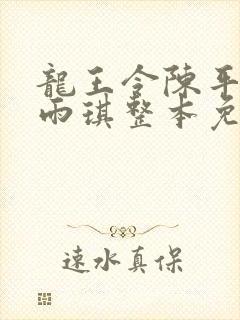 龍王令陳平
雨琪整本免
速水真保